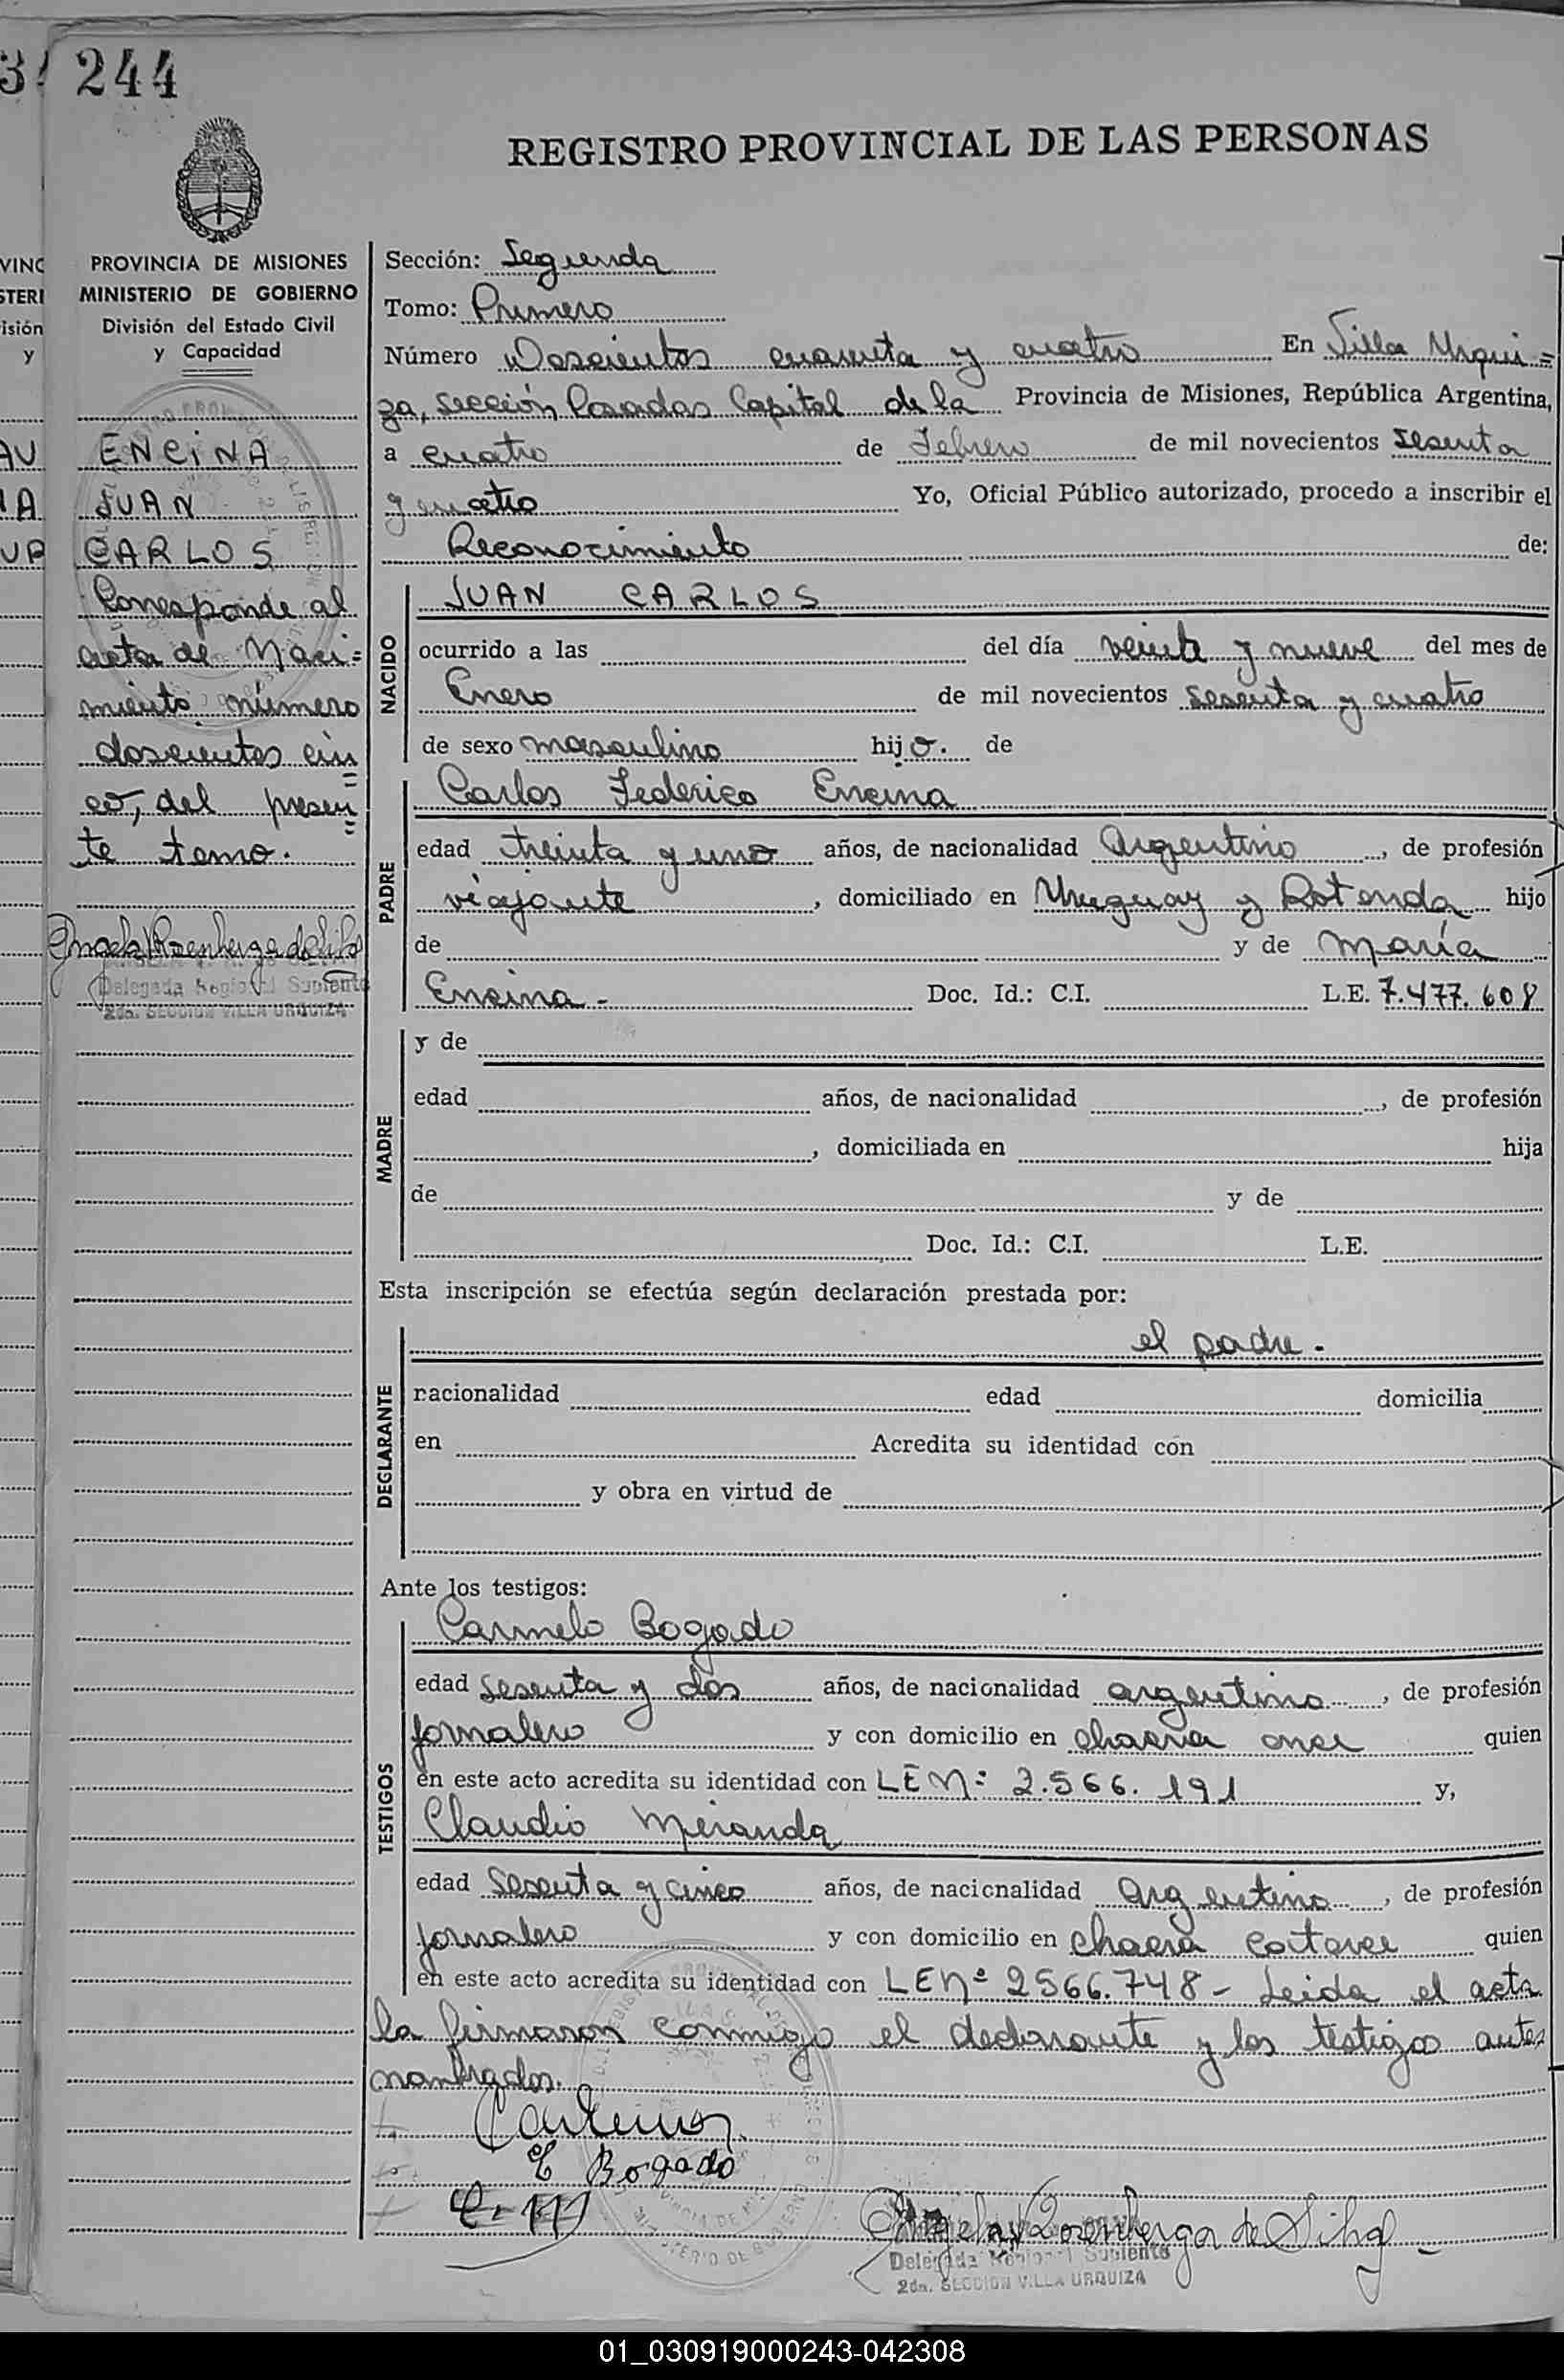 244
REGISTRO PROVINCIAL DE LAS PERSONAS
PROVINCIA DE MISIONES
MINISTERIO DE GOBIERNO
División del Estado Civil
y Capacidad
ENCINA
JUAN
CARLOS
Corresponde al
acta de Naci=
miento número
doscientos cin
co, del presen
te tomo.
Delegada Regional Suplente
2da. SECCION VILLA URQUIZA
Sección: Segunda
Tomo: Primero
Número Doscientos cuarenta y cuatro En Villa Urqui=
za, sección Posadas Capital de la Provincia de Misiones, República Argentina,
a cuatro de Febrero de mil novecientos sesenta
y cuatro Yo, Oficial Público autorizado, procedo a inscribir el
Reconocimiento de:
NACIDO
JUAN CARLOS
ocurrido a las del día veinte y nueve del mes de
Enero de mil novecientos sesenta y cuatro
de sexo masculino hijo. de
PADRE
Carlos Federico Encina
edad treinta y uno años, de nacionalidad Argentino, de profesión
viajante, domiciliado en Uruguay y Rotonda hijo
de y de María
Encina - Doc. Id.: C.I. L.E. 7.477.608
MADRE
y de
edad años, de nacionalidad , de profesión
, domiciliada en hija
de y de
Doc. Id.: C.I. L.E.
Esta inscripción se efectúa según declaración prestada por:
DECLARANTE
el padre.
nacionalidad edad domicilia
en Acredita su identidad con
y obra en virtud de
Ante los testigos:
TESTIGOS
Carmelo Bogado
edad sesenta y dos años, de nacionalidad argentino, de profesión
jornalero y con domicilio en chacra once quien
en este acto acredita su identidad con LE Nº 2.566.191 y,
Claudio Miranda
edad sesenta y cinco años, de nacionalidad argentino, de profesión
jornalero y con domicilio en chacra catorce quien
en este acto acredita su identidad con LE Nº 2566.748 - Leida el acta
la firmaron conmigo el declarante y los testigos antes
nombrados.
C Bogado
Angela V Rosenberga de Silva
Delegada Regional Suplente
2da. SECCION VILLA URQUIZA
01_030919000243-042308